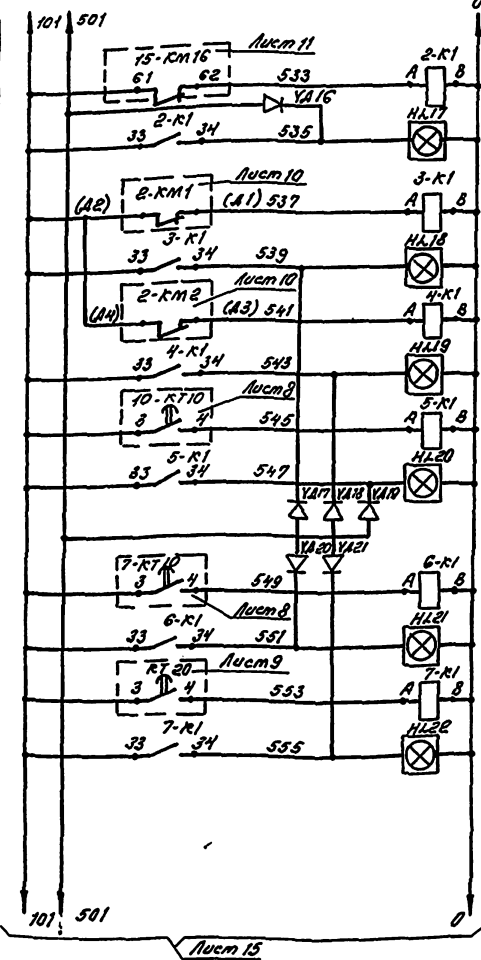 101 501 0
15-КМ16 Лист 11
61 62 533 A 2-К1 B
VД16
2-К1
33 34 535 HL17
2-КМ1 Лист 10
(А2) (А1) 537 A 3-К1 B
3-К1
33 34 539 HL18
2-КМ2 Лист 10
(А4) (А3) 541 A 4-К1 B
4-К1
33 34 543 HL19
10-КТ10 Лист 8
3 4 545 A 5-К1 B
5-К1
33 34 547 HL20
VД17 VД18 VД19
VД20 VД21
7-КТ10
3 4 549 A 6-К1 B
Лист 8
6-К1
33 34 551 HL21
КТ20 Лист 9
3 4 553 A 7-К1 B
7-К1
33 34 555 HL22
101 501 0
Лист 15